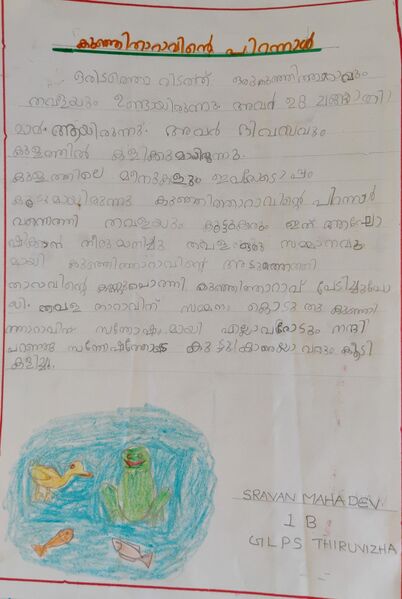 കുഞ്ഞിതാറാവിന്റെ പിറന്നാൾ
ഒരിടത്തൊ വിടത്ത് ഒരുകുഞ്ഞിത്താറാവും
തവളയും ഉണ്ടായിരുന്നു. അവർ ഉറ്റ ചങ്ങാതി
മാർ. ആയിരുന്നു. അവർ ദിവസവും
കുളത്തിൽ കളിക്കുമായിരുന്നു.
കുളത്തിലെ മീനുകളും ഇവരുടെ ഒപ്പം
കൂടുമായിരുന്നു കുഞ്ഞിത്താറാവിന്റെ പിറന്നാൾ
വന്നെത്തി തവളയും കൂട്ടുകാരും ഇത് ആഘോ
ഷിക്കാൻ തീരുമാനിച്ചു തവള ഒരു സമ്മാനവു
മായി കുഞ്ഞിത്താറാവിന്റെ അടുത്തെത്തി
താറാവിന്റെ കണ്ണുപൊത്തി കുഞ്ഞിത്താറാവ് പേടിച്ചുപോ
യി. തവള താറാവിന് സമ്മാനം കൊടുത്തു കുഞ്ഞി
ത്താറാവിന് സന്തോഷമായി എല്ലാവരോടും നന്ദി
പറഞ്ഞു സന്തോഷത്തോടെ കൂട്ടുകാരെല്ലാവരും കൂടി
കളിച്ചു.
SRAVAN MAHADEV
1 B
GLPS THIRUVIZHA